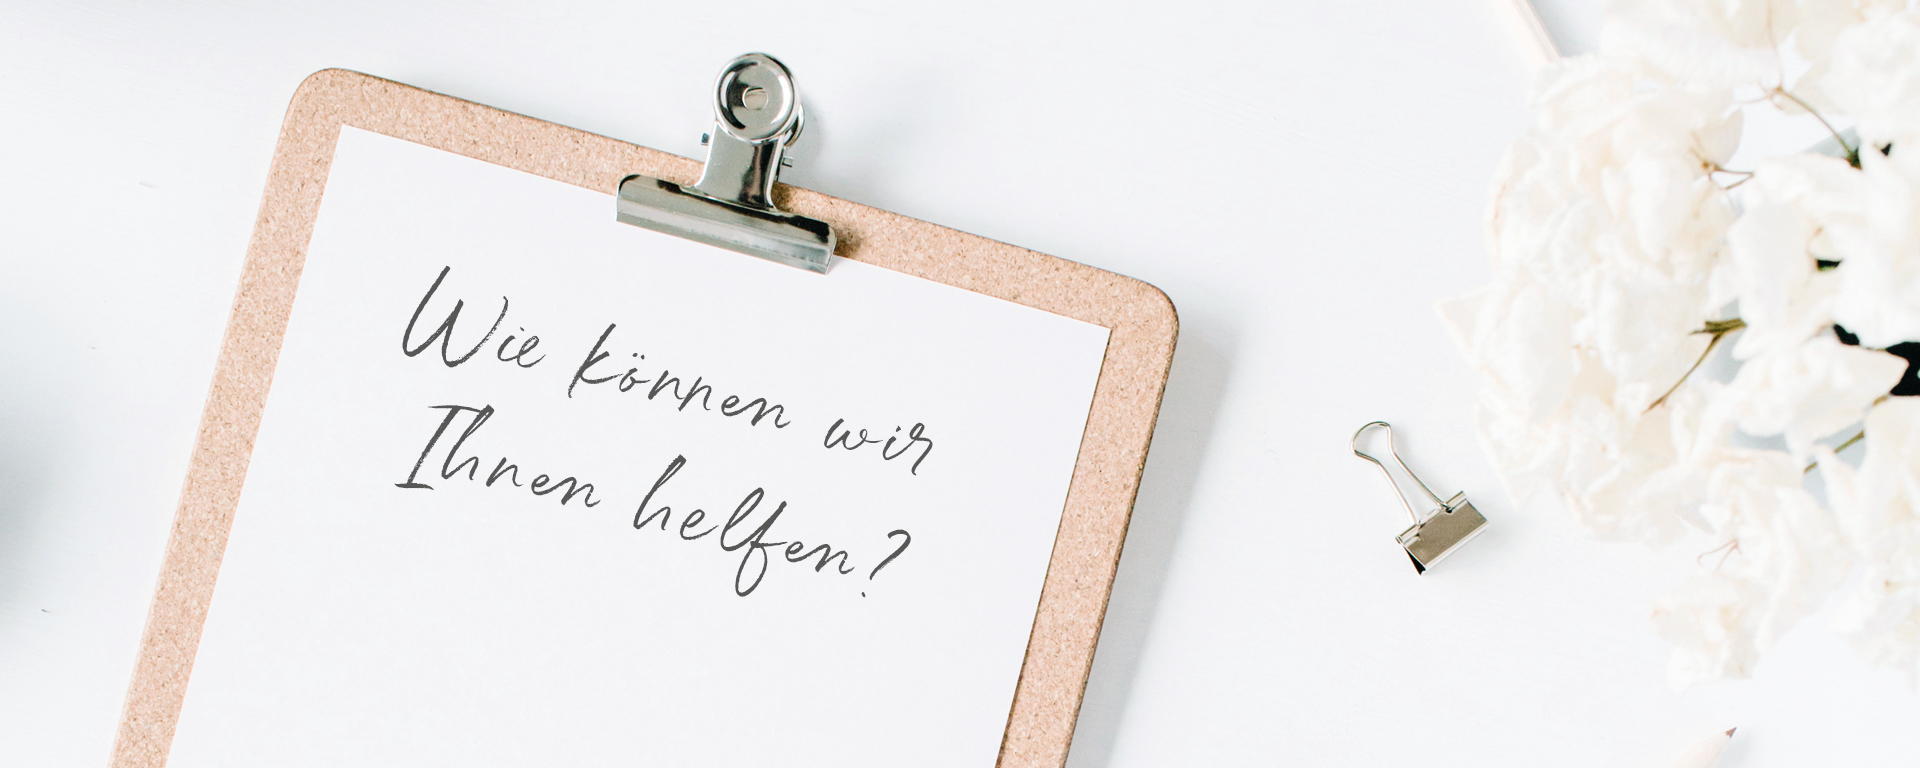 Wie können wir
Ihnen helfen?